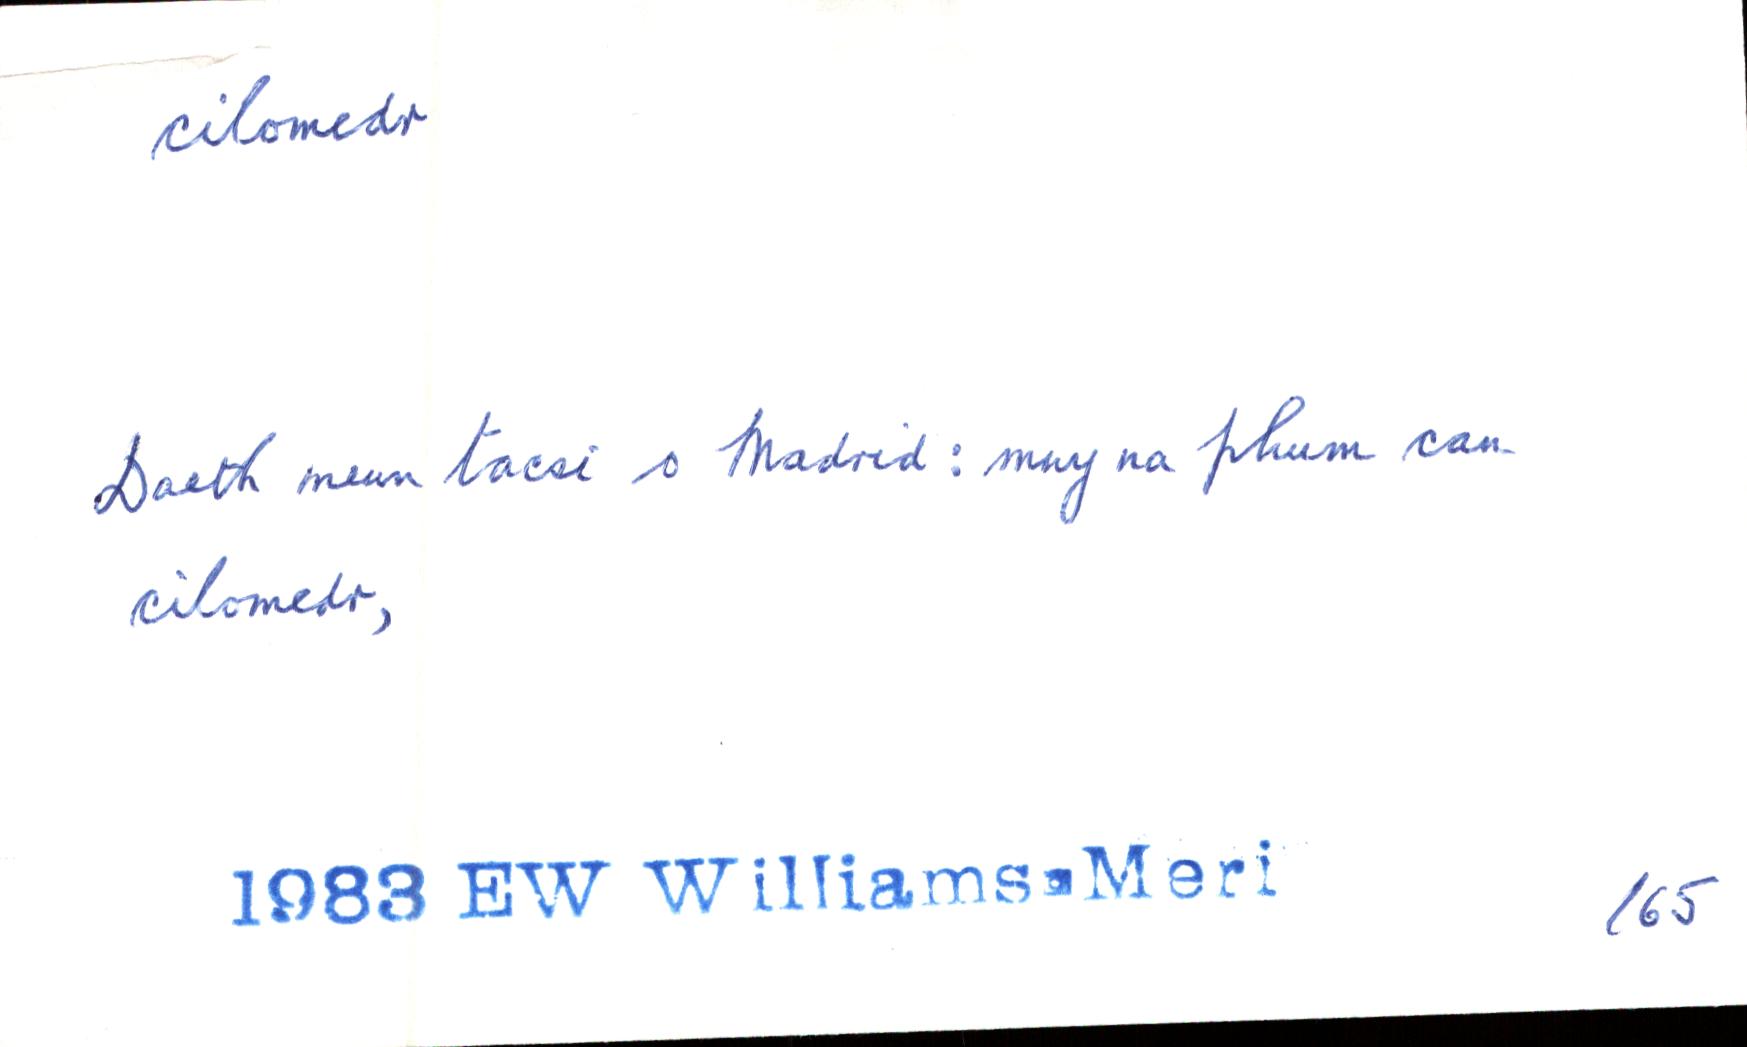 cilomedr
Daeth mewn tacsi o Madrid : mwy na phum can
cilomedr,
1983 EW Williams-Meri 165